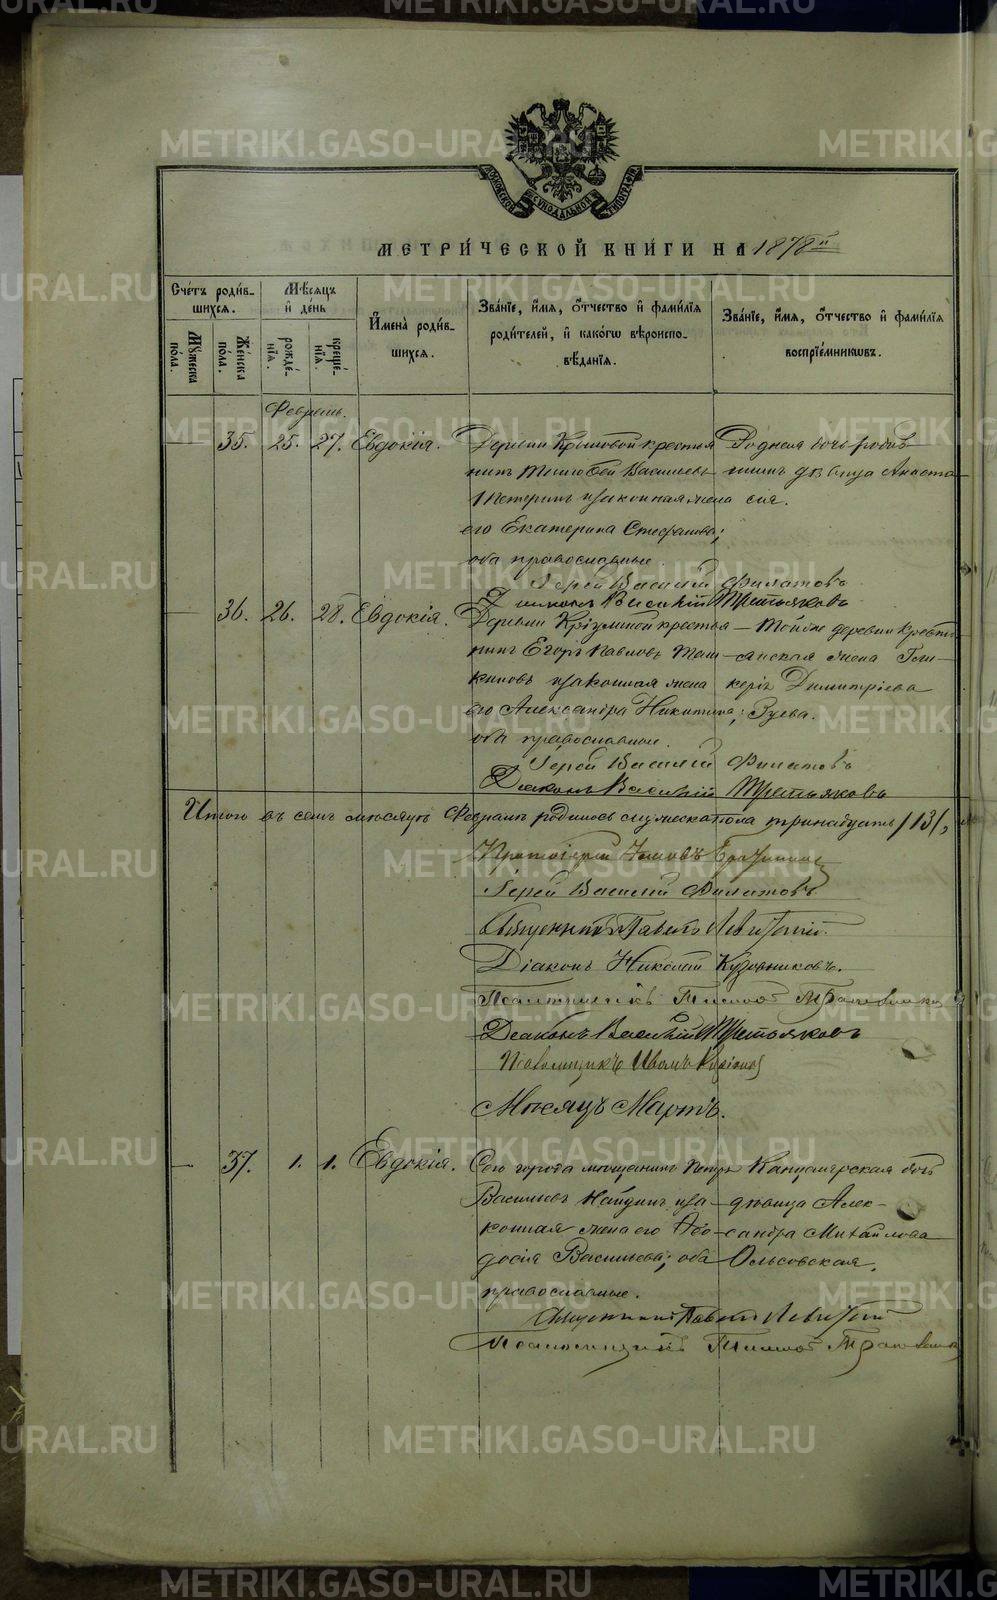 METRIKI.GASO-URAL.RU
МОСКОВСКОЙ СѴНОДАЛЬНОЙ ТИПОГРАФІИ
МЕТРИ́ЧЕСКОЙ КНИ́ГИ НА 1878 й
Сче́тъ роди́в-
шихся.
Мꙋ́жеска по́ла.
Же́нска по́ла.
Мѣ́сяцъ и де́нь
рожде́-
нїя.
креще́-
нїя.
И҆мена̀ роди́в-
шихся.
Зва́нїе, и҆́мя, ѻ҆́тчество и҆ фами́лїя
роди́телей, и҆ како́гѡ вѣроиспо-
вѣ́данїя.
Зва́нїе, и҆́мя, ѻ҆́тчество и҆ фами́лїя
воспрїе́мникѡвъ.
Февраль.
35. 25. 27. Евдокія.
Деревни крестья
нинъ Васильевъ
законная жена
его Екатерина Стефанова;
оба православные.
Родная дочь
дѣвица Анаста
сія.
Іерей Василій Филатовъ
Діаконъ Василій Третьяковъ
36. 26. 28. Евдокія.
Деревни крестья
нинъ Егоръ Павловъ
законная жена
его Александра Никитина;
оба православные.
Той же деревни крестья
нская жена
Димитріева
Зуева.
Іерей Василій Филатовъ
Діаконъ Василій Третьяковъ
Итого въ семъ мѣсяцѣ Февралѣ родилось мужеска пола тринадцать /13/,
Протоіерей
Іерей Василій Филатовъ
Священникъ Павелъ Левитскій.
Діаконъ Николай Кузовниковъ.
Псаломщикъ
Діаконъ Василій Третьяковъ
Псаломщикъ Иванъ
Мѣсяцъ Мартъ.
37. 1. 1. Евдокія.
Сего города мѣщанинъ Петръ
Васильевъ Найдинъ за-
конная жена его Фео-
досія Васильева; оба
православные.
Канцелярская дочь
дѣвица Алек-
сандра Михайлова
Ольсовская.
Священникъ Павелъ Левитскій
Псаломщикъ